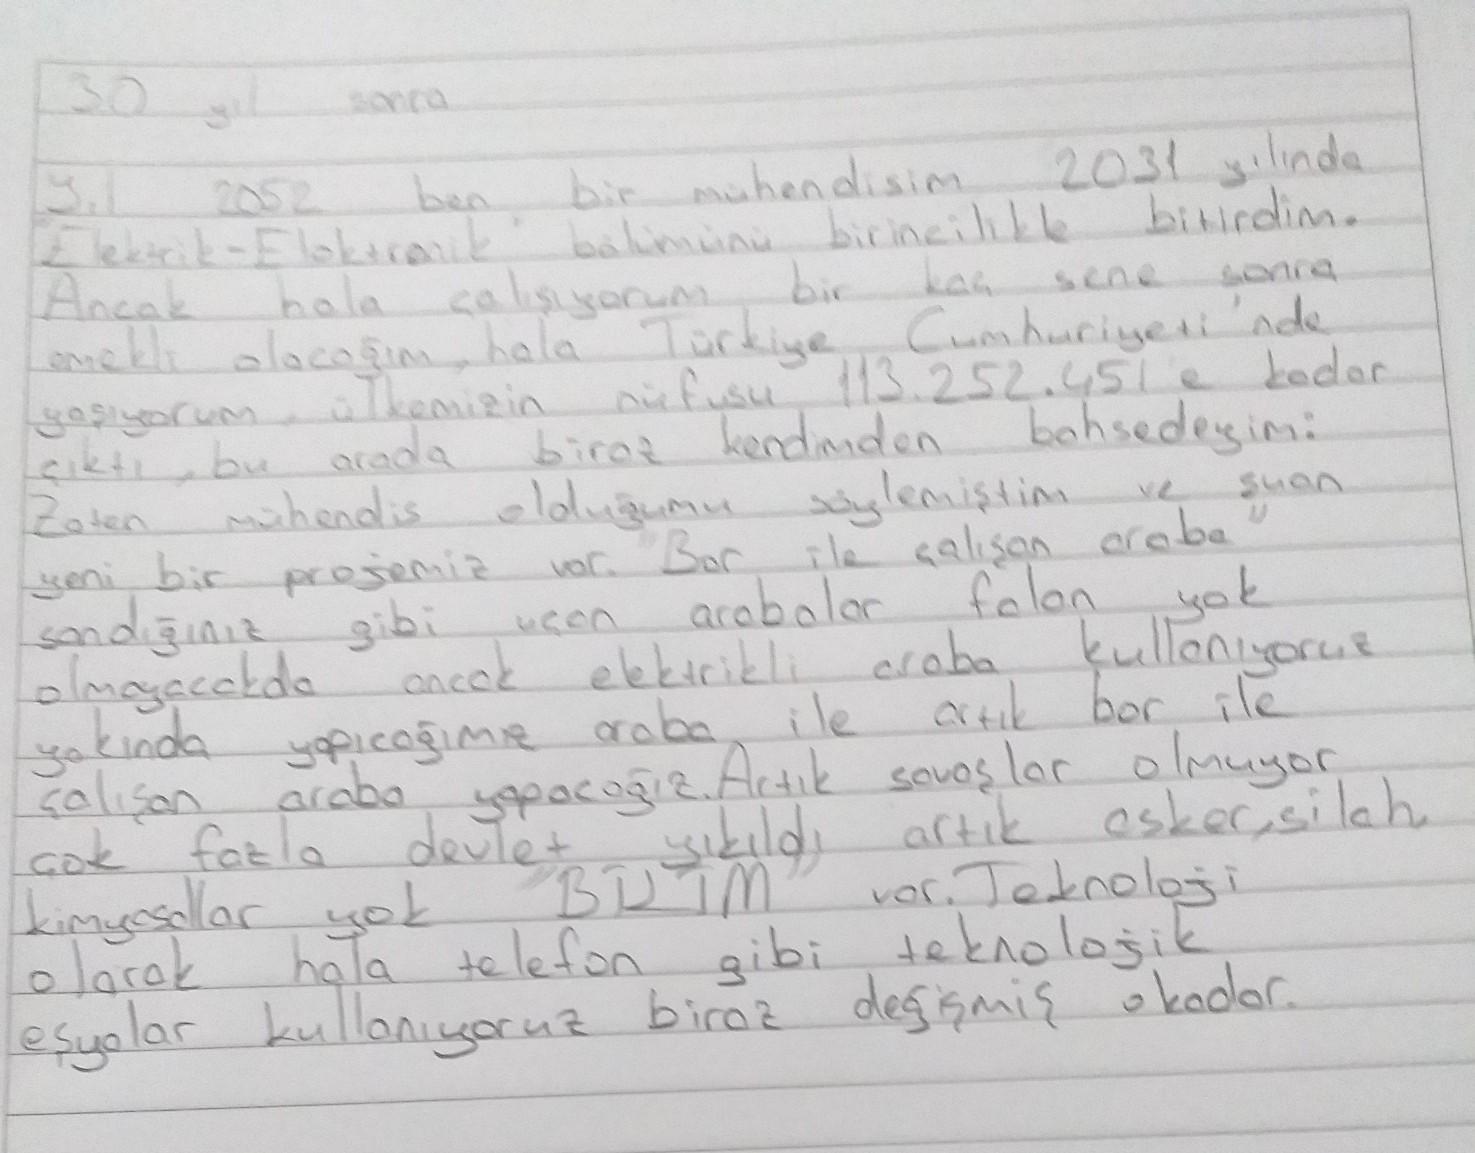 30 yıl sonra
Yıl 2052 ben bir mühendisim 2031 yılında
"Elektrik-Elektronik" bölümünü birincilikle bitirdim.
Ancak hala çalışıyorum, bir kaç sene sonra
emekli olacağım, hala Türkiye Cumhuriyeti'nde
yaşıyorum. ülkemizin nüfusu 113.252.451 e kadar
çıktı, bu arada biraz kendimden bahsedeyim:
Zaten mühendis olduğumu söylemiştim ve şuan
yeni bir projemiz var. "Bor ile çalışan araba"
sandığınız gibi uçan arabalar falan yok
olmayacakda ancak elektrikli araba kullanıyoruz
yakında yapıcağımız araba ile artık bor ile
çalışan araba yapacağız. Artık savaşlar olmuyor
çok fazla devlet yıkıldı artık asker, silah
kimyasallar yok "BUTM" var. Teknoloji
olarak hala telefon gibi teknolojik
eşyalar kullanıyoruz biraz değişmiş okadar.